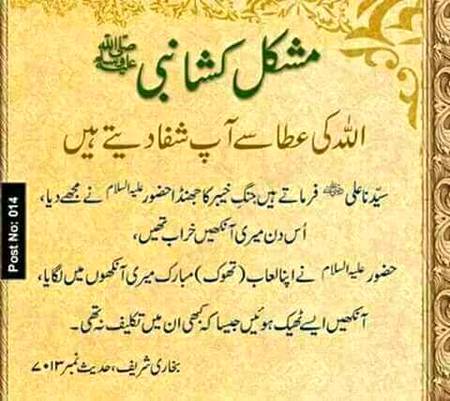 مشکل کشا نبی ﷺ
اللہ کی عطا سے آپ شفا دیتے ہیں
سیّدنا علی رضی اللہ عنہ فرماتے ہیں جنگِ خیبر کا جھنڈا حضور علیہ السلام نے مجھے دیا،
اُس دن میری آنکھیں خراب تھیں،
حضور علیہ السلام نے اپنا لعاب (تھوک) مبارک میری آنکھوں میں لگایا،
آنکھیں ایسے ٹھیک ہوئیں جیسا کہ کبھی ان میں تکلیف نہ تھی۔
بخاری شریف، حدیث نمبر ۷۰۱۳
Post No: 014